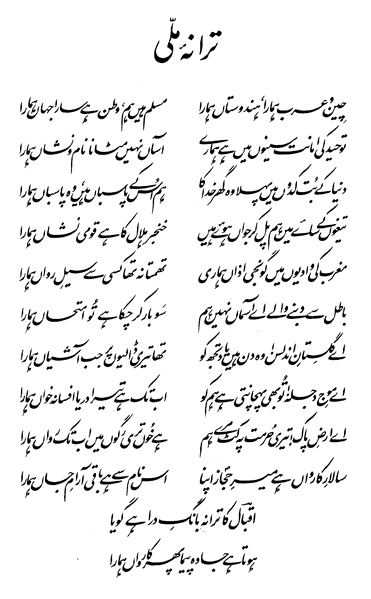 ترانۂ ملّی
چین و عرب ہمارا، ہندوستاں ہمارا مسلم ہیں ہم، وطن ہے سارا جہاں ہمارا
توحید کی امانت سینوں میں ہے ہمارے آساں نہیں مٹانا نام و نشاں ہمارا
دنیا کے بُت کدوں میں پہلا وہ گھر خدا کا ہم اُس کے پاسباں ہیں، وہ پاسباں ہمارا
تیغوں کے سائے میں ہم پل کر جواں ہوئے ہیں خنجر ہلال کا ہے قومی نشاں ہمارا
مغرب کی وادیوں میں گونجی اذاں ہماری تھمتا نہ تھا کسی سے سیلِ رواں ہمارا
باطل سے دبنے والے اے آسماں نہیں ہم سَو بار کر چکا ہے تُو امتحاں ہمارا
اے گلستانِ اندلس! وہ دن ہیں یاد تجھ کو تھا تیری ڈالیوں پر جب آشیاں ہمارا
اے موجِ دجلہ! تُو بھی پہچانتی ہے ہم کو اب تک ہے تیرا دریا افسانہ خواں ہمارا
اے ارضِ پاک! تیری حُرمت پہ کٹ مرے ہم ہے خُوں تری رگوں میں اب تک رواں ہمارا
سالارِ کارواں ہے میرِ حجازؐ اپنا اس نام سے ہے باقی آرامِ جاں ہمارا
اقبالؔ کا ترانہ بانگِ درا ہے گویا
ہوتا ہے جادہ پیما پھر کارواں ہمارا